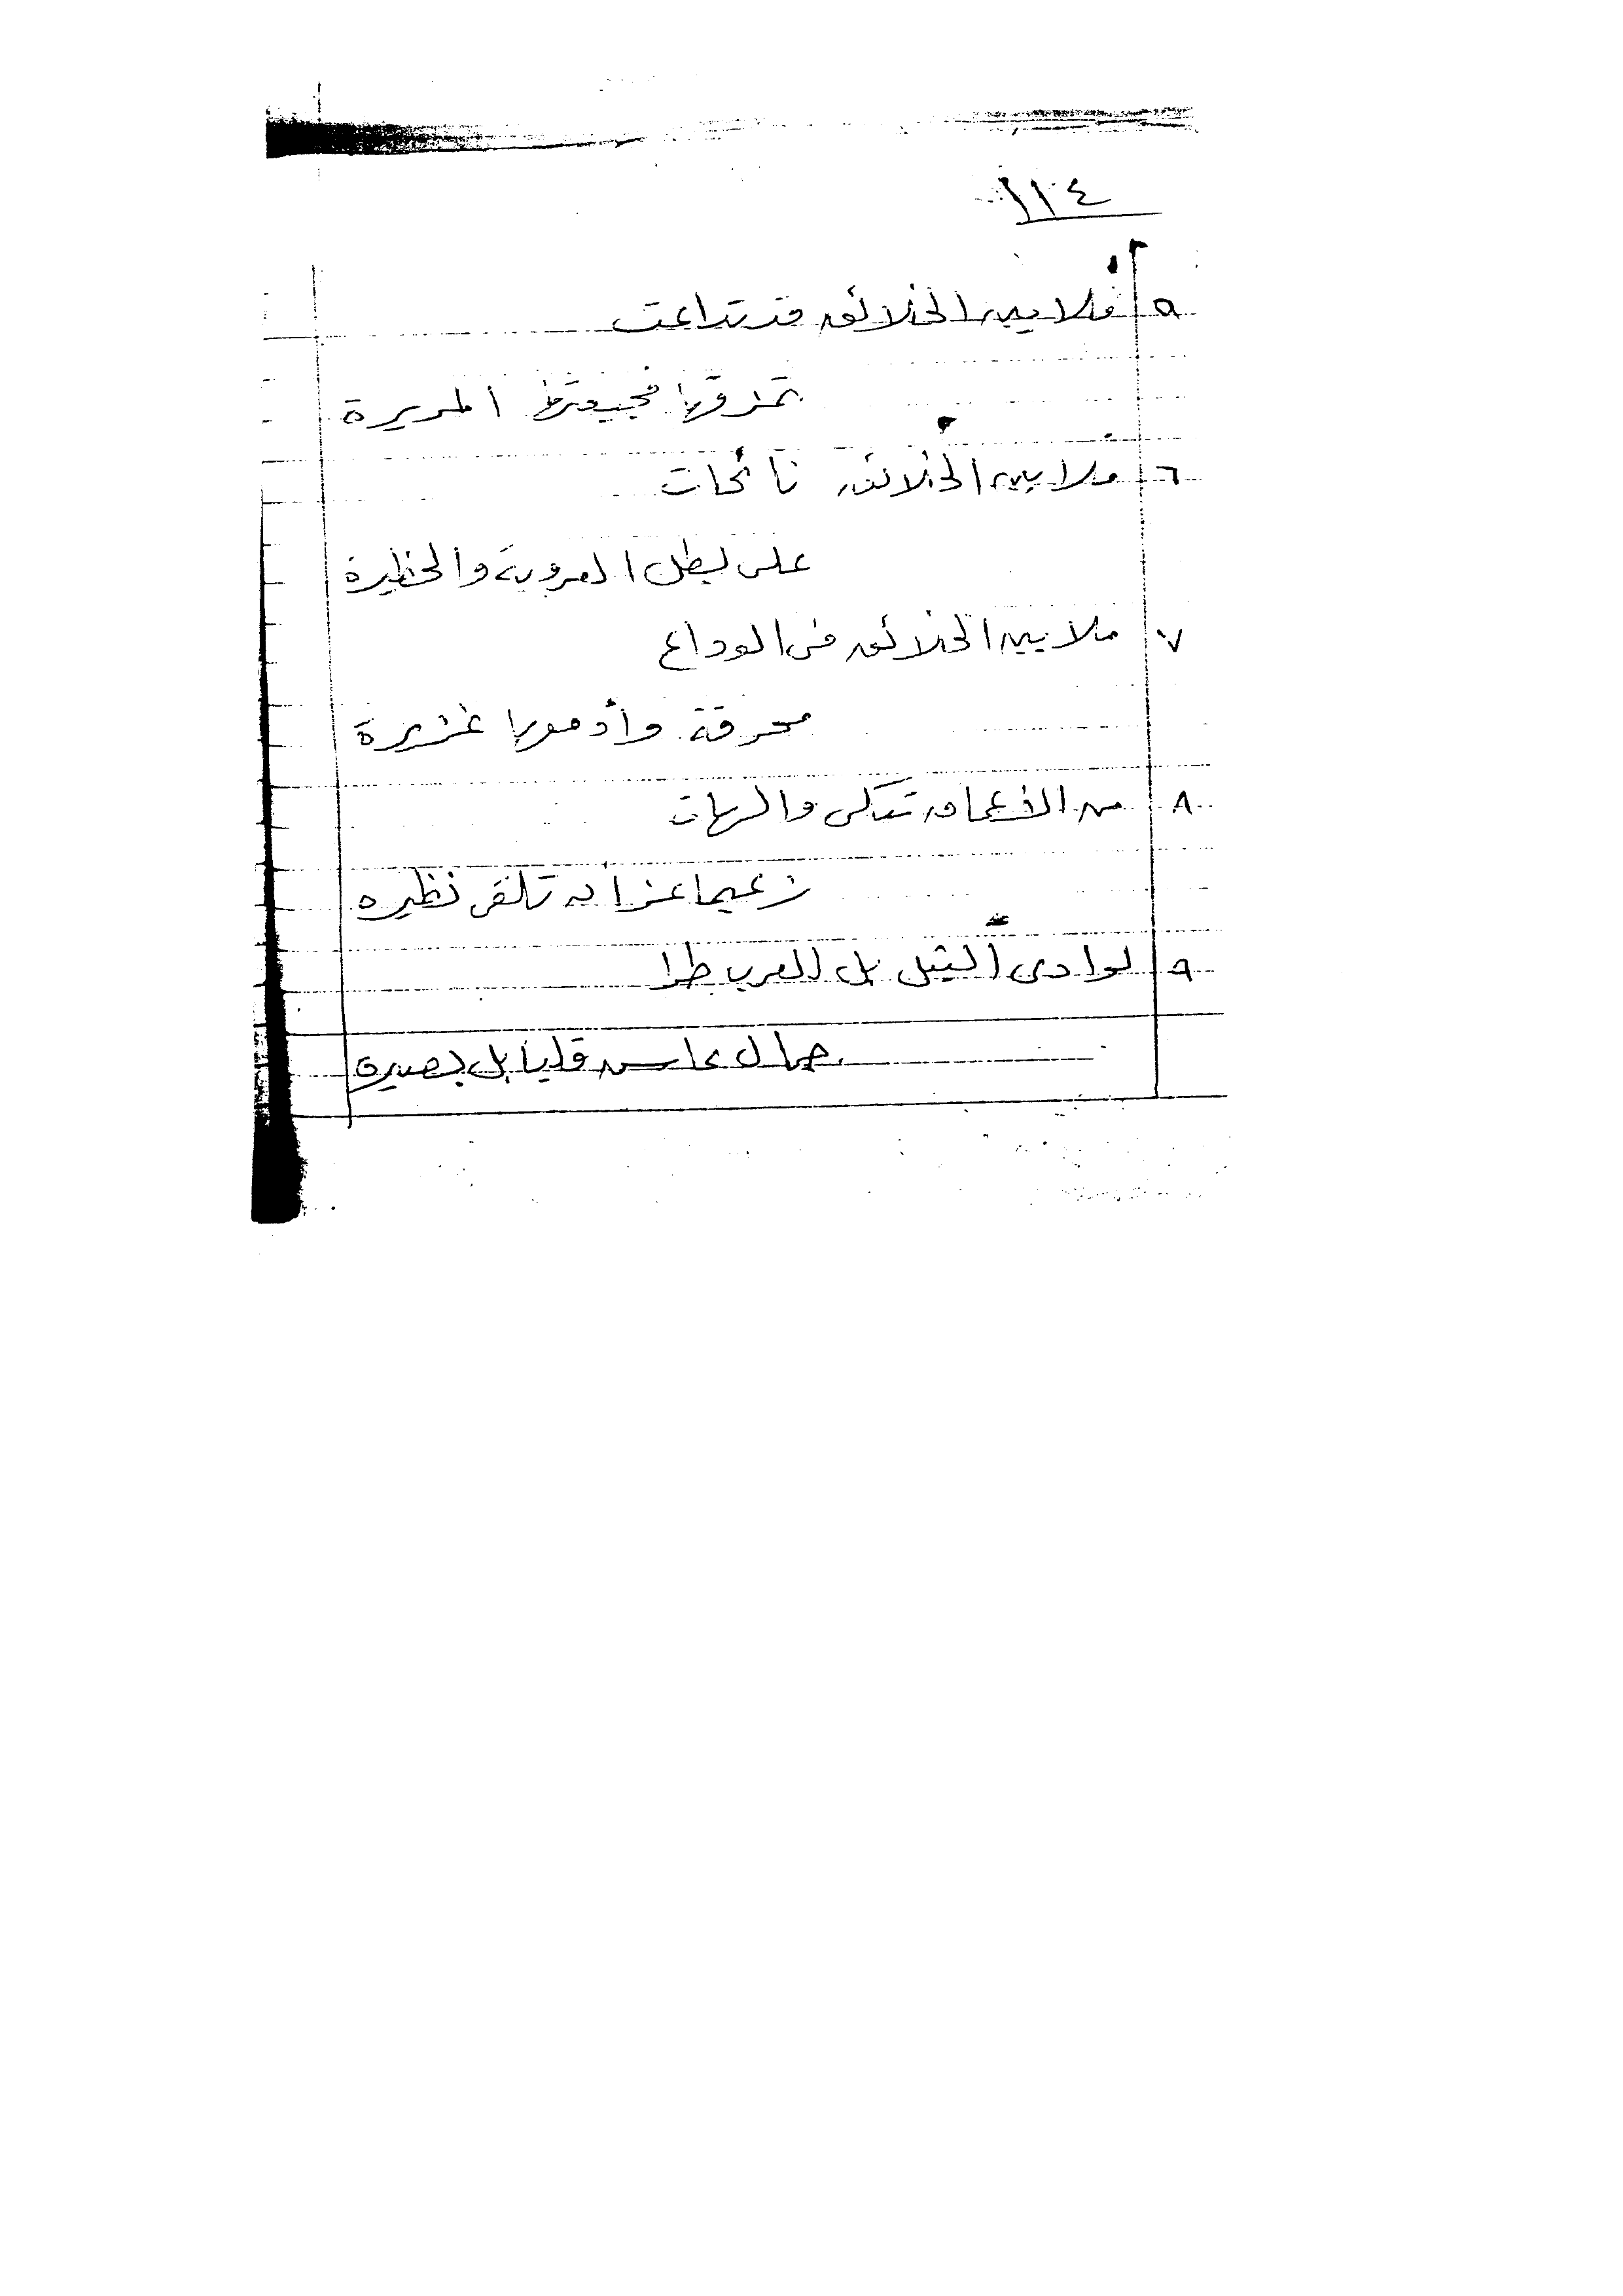 ١١٤
٥ ملايين الخلائق قد تداعت
تمزقها فجيعتها المريرة
٦ ملايين الخلائق نائحات
على بطل العروبة والحظيرة
٧ ملايين الخلائق في الوداع
محرقة وأدمعها غزيرة
٨ من الأعماق تبكى والهات
زعيما عز أن تلقى نظيره
٩ لوادى النيل بل للعرب طرا
جمال عاش قلبا بل بصيره